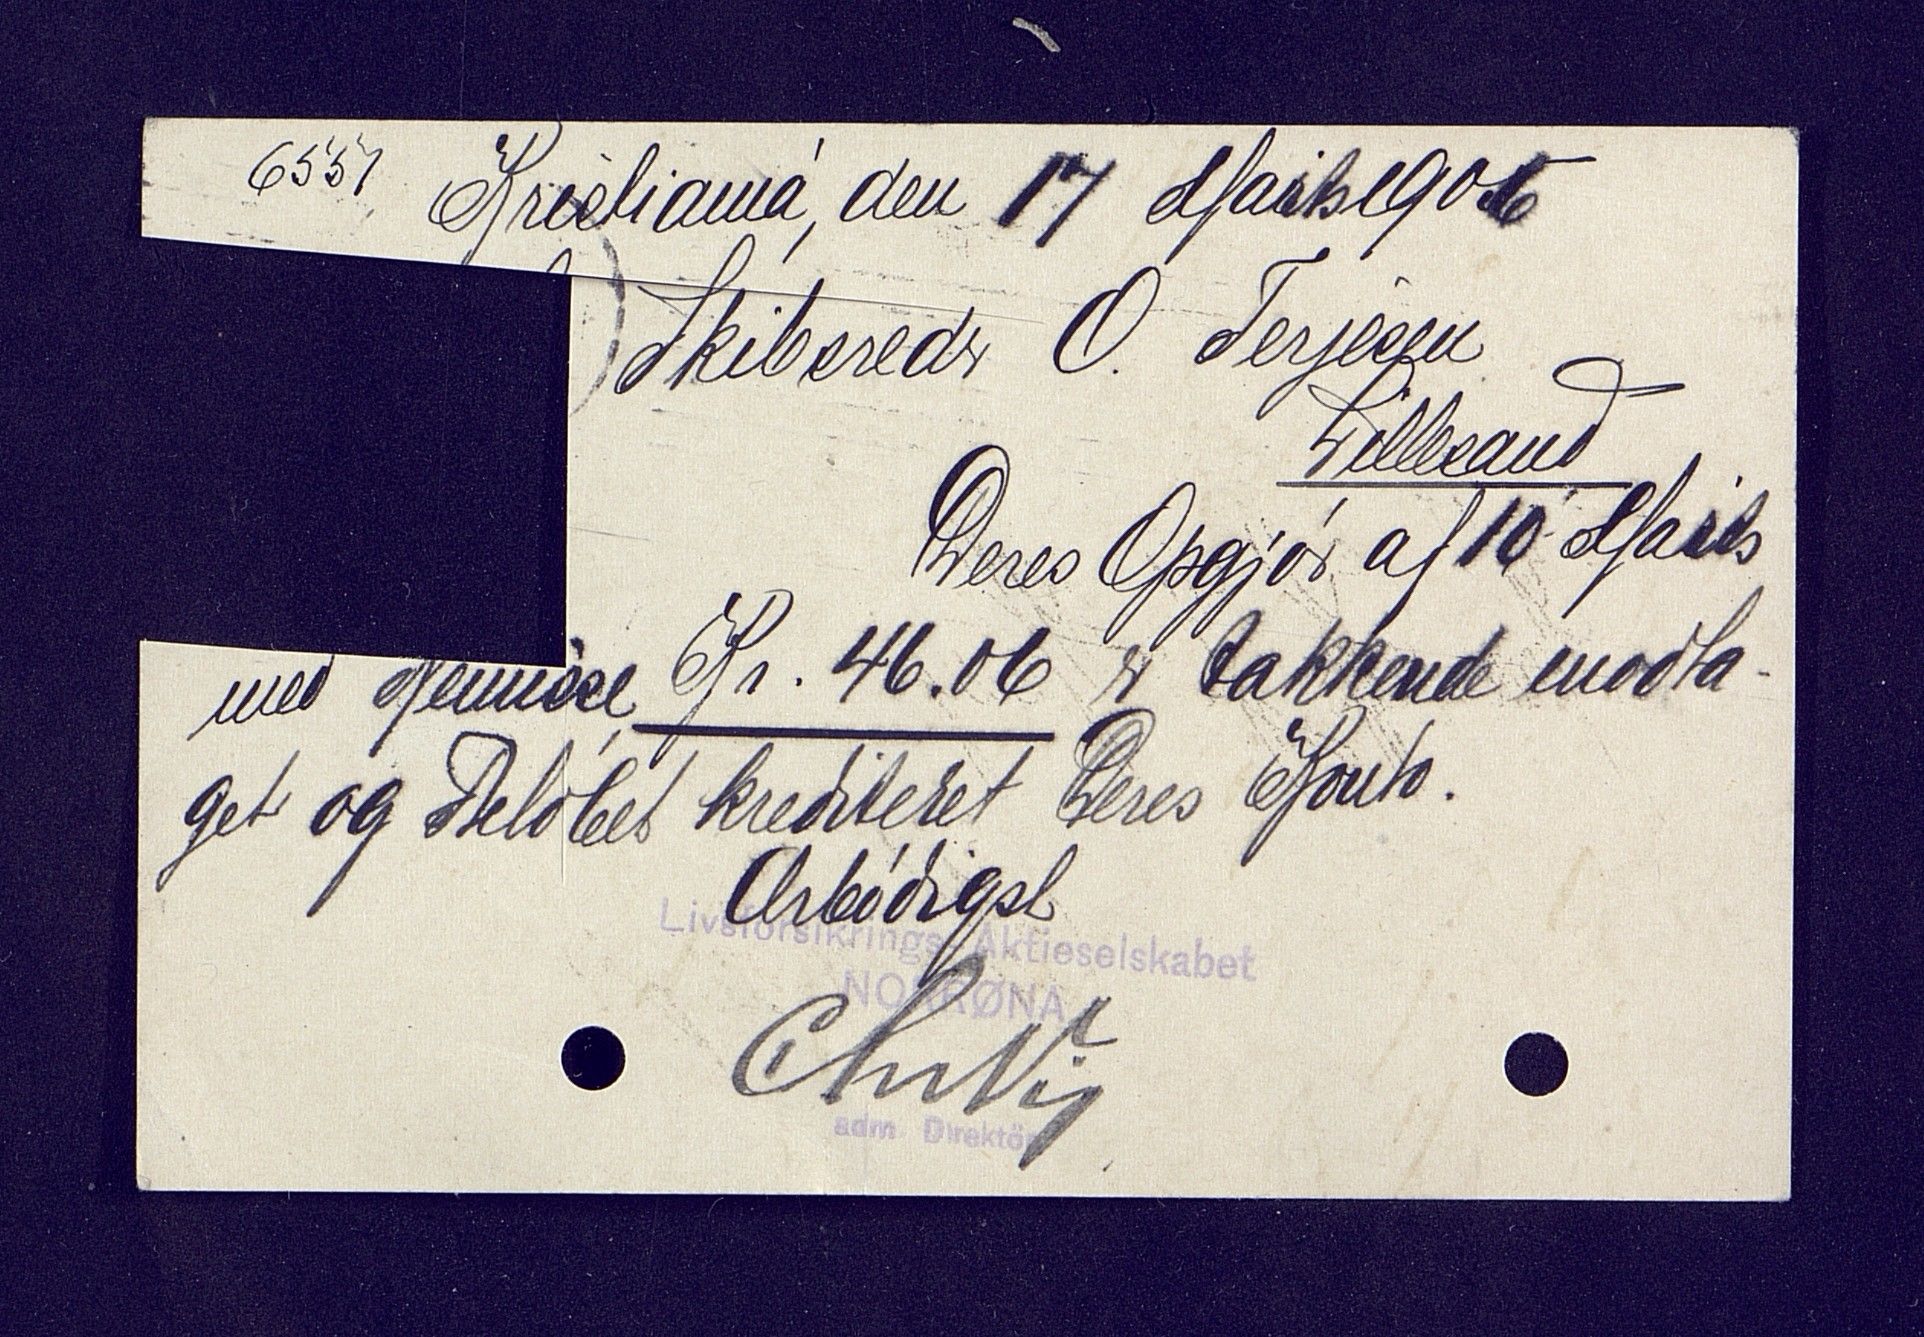 6557 Kristiania, den 17 Marts 1906
Skibsredr O. Terjesen
Lillesand
Deres Opgjör af 10 Marts
med Remisse Kr. 46.06 er takkende modta-
get og Belöbet krediteret Deres Konto.
Ærbödigst
Livsforsikrings-Aktieselskabet
NORRØNA
adm. Direktör